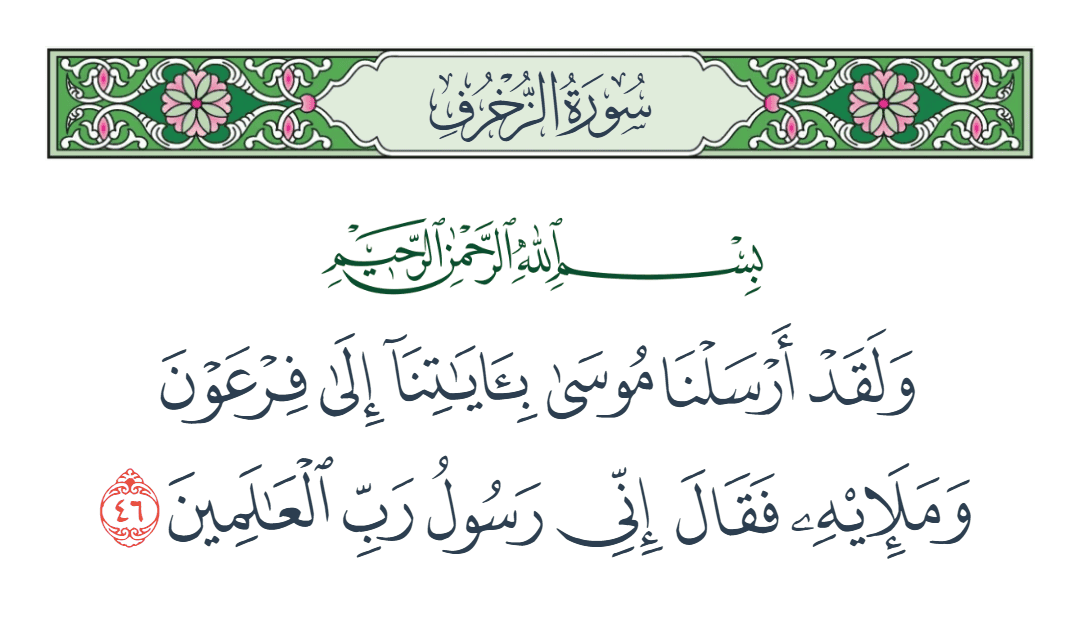 سُورَةُ الزُّخْرُفِ
بِسْمِ ٱللَّهِ ٱلرَّحْمَٰنِ ٱلرَّحِيمِ
وَلَقَدْ أَرْسَلْنَا مُوسَىٰ بِـَٔايَـٰتِنَآ إِلَىٰ فِرْعَوْنَ
وَمَلَإِيْهِۦ فَقَالَ إِنِّى رَسُولُ رَبِّ ٱلْعَـٰلَمِينَ ٤٦